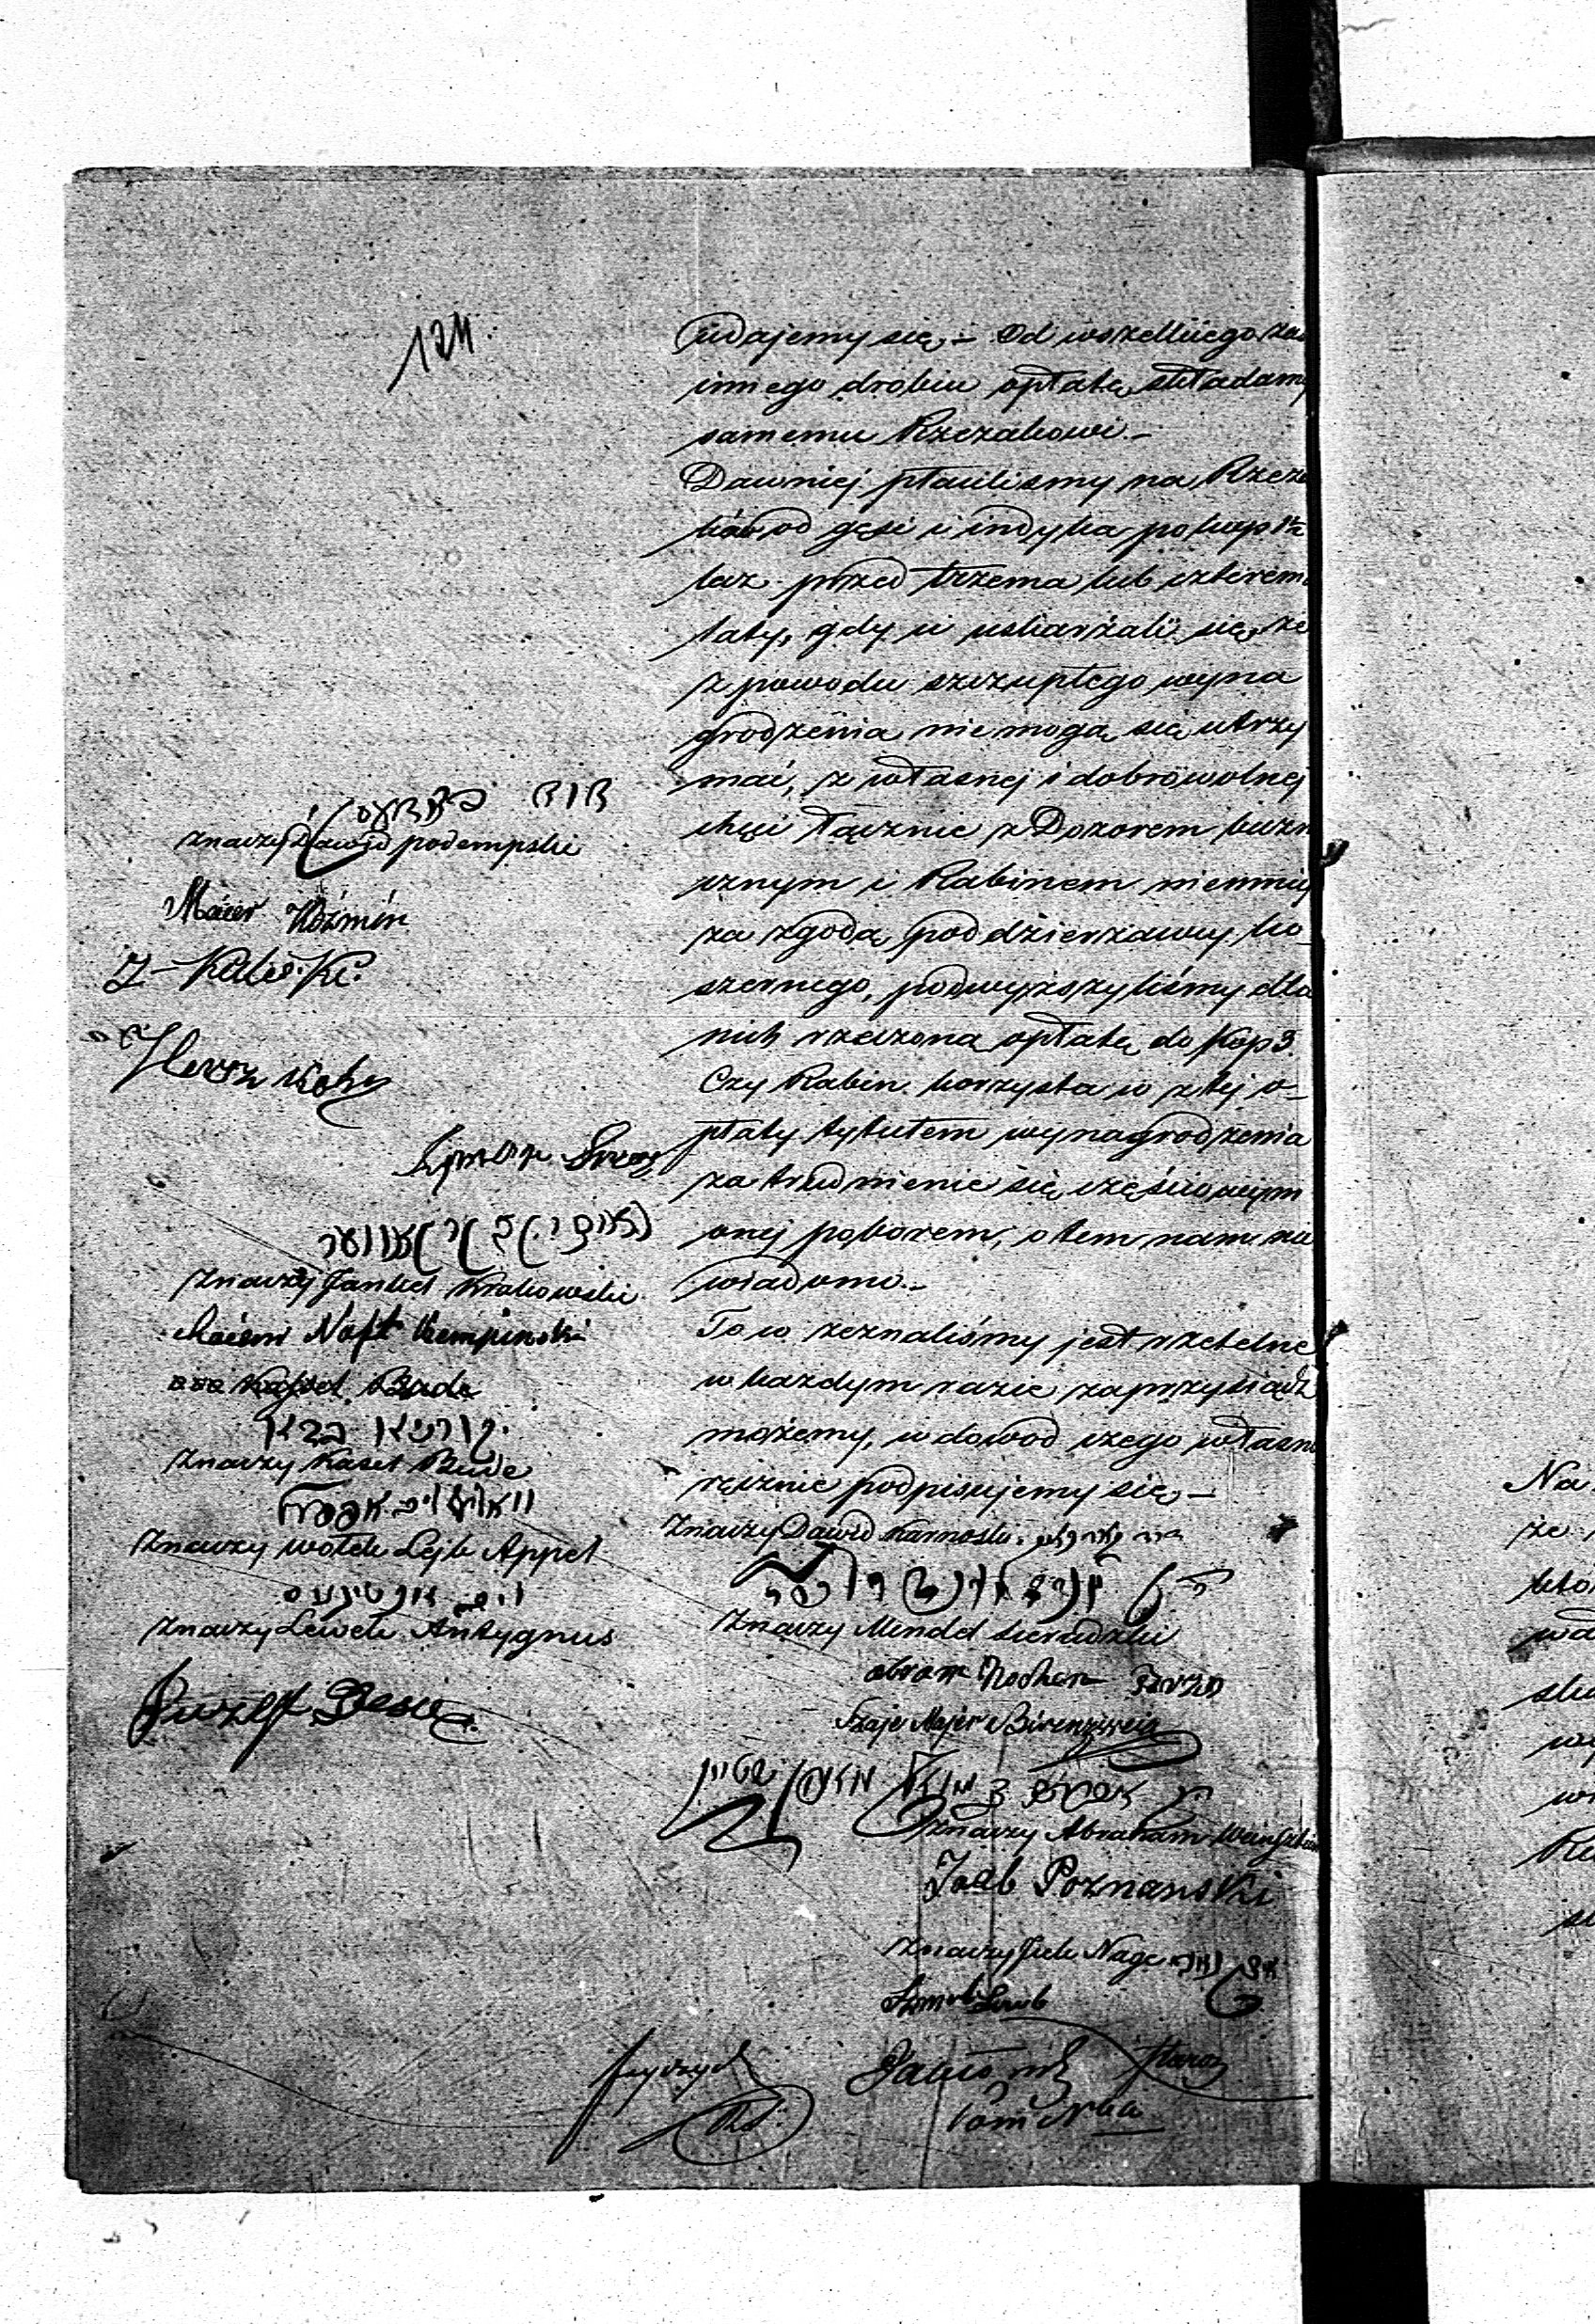 124.
udajemy się. — Od wszelkiego zaś
innego drobiu opłatę składamy
samemu Rzezakowi. —
Dawniej płaciliśmy na Rzeza
ków od gęsi i indyka po kop 1½
lecz przed trzema lub czterema
laty, gdy ci uskarżali się, że
z powodu szczupłego wyna
grodzenia nie mogą się utrzy
mać, z własnej i dobrowolnej
chęci łącznie z Dozorem bożni
cznym i Rabinem niemniej
za zgodą poddzierżawcy ko-
szernego, podwyższyliśmy dla
nich rzeczoną opłatę do Kop 3.
Czy Rabin korzysta co z tej o-
płaty tytułem wynagrodzenia
za trudnienie się częściowym
onej poborem, o tem nam nie
wiadomo. —
To co zeznaliśmy jest rzetelne
w każdym razie zaprzysiądz
możemy, w dowód czego własno
ręcznie podpisujemy się —
Znaczy Dawid Karnoski
Znaczy Mendel Sieradzki
abram
Szaje Majer Birenzweig
znaczy Abraham Wainsztein
Jakb Poznanski
znaczy Icek Nage
Szmul
znaczy Dawid podempski
Maier Koźmin
Z Kaliski
Hersz Kohn
Szyman
Znaczy Jankel Krakowski
Naft Kempinski
ooo Kassel Bude
Znaczy Kasel Bude
Znaczy Wolek Lejb Appel
וואלף לייב אפפעל
Znaczy Lewek Antygnus